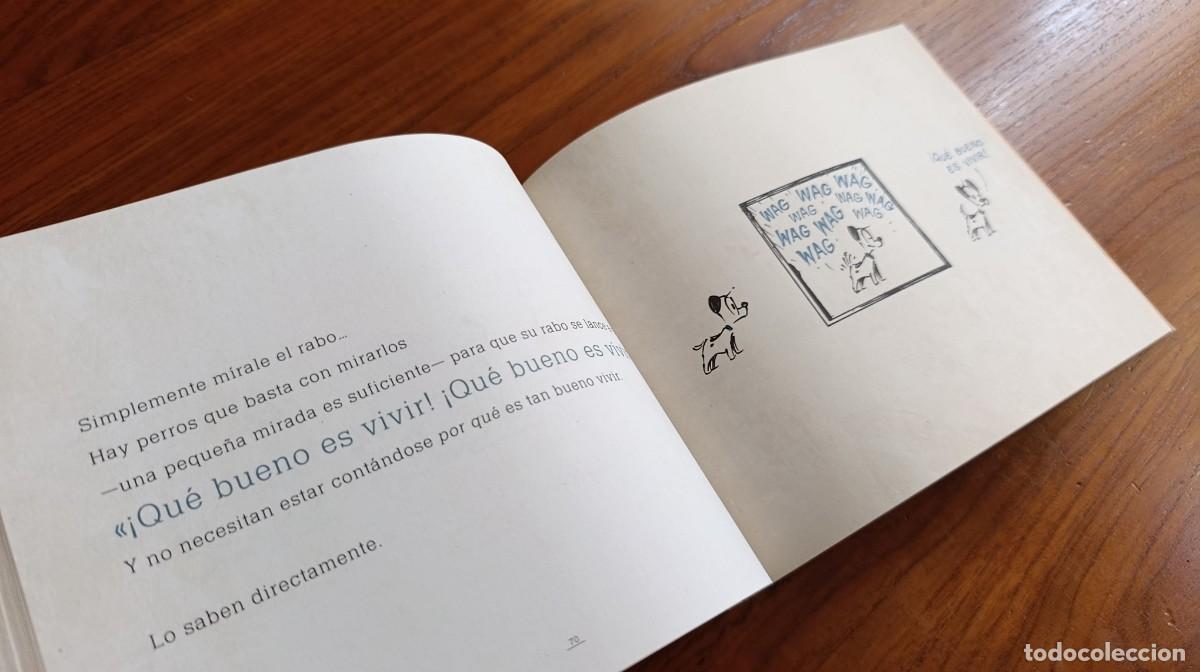 Simplemente mírale el rabo...
Hay perros que basta con mirarlos
—una pequeña mirada es suficiente— para que su rabo se lance
«¡Qué bueno es vivir! ¡Qué bueno es
Y no necesitan estar contándose por qué es tan bueno vivir.
Lo saben directamente.
70
WAG WAG WAG
WAG WAG WAG
WAG WAG WAG
WAG
¡QUÉ BUENO
ES VIVIR!
todocoleccion